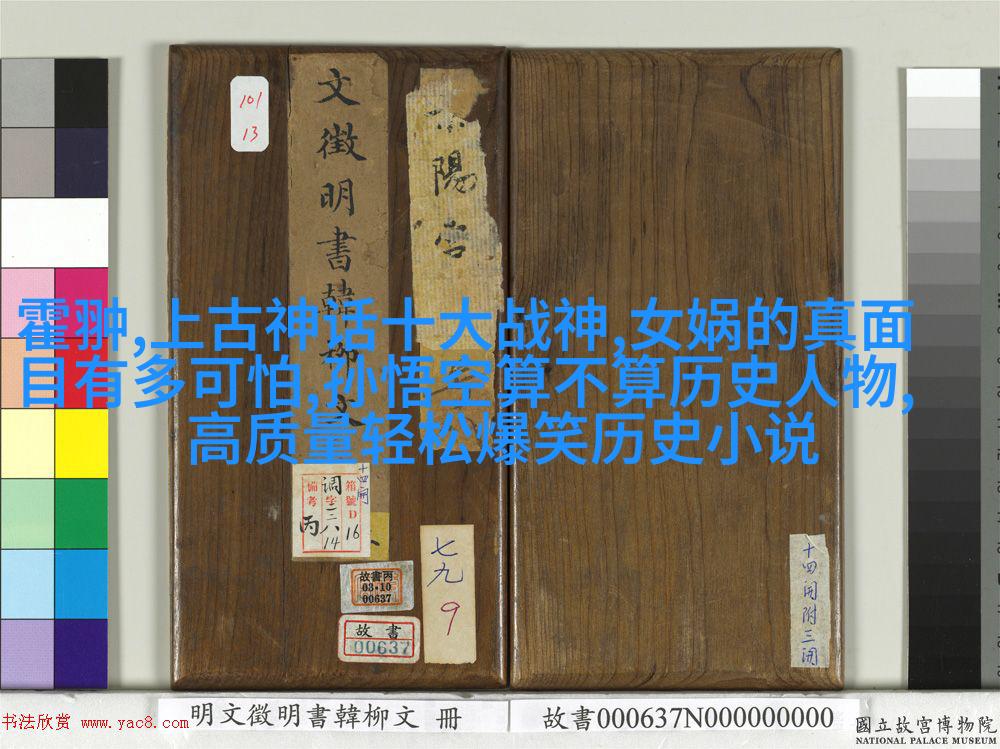 101
13
文徵明書韓柳文
陽宮
霍翀,上古神话十大战神,女娲的真面
目有多可怕,孙悟空算不算历史人物,
高质量轻松爆笑历史小说
十四開
箱號D
16
調
字三八
14
備考
丙
故書丙
03·10
00637
故書
00637
七九
9
十四開附三開
書法欣赏 www.yac8.com
明文徵明書韓柳文 冊
故書000637N000000000
國立故宮博物院
NATIONAL PALACE MUSEUM